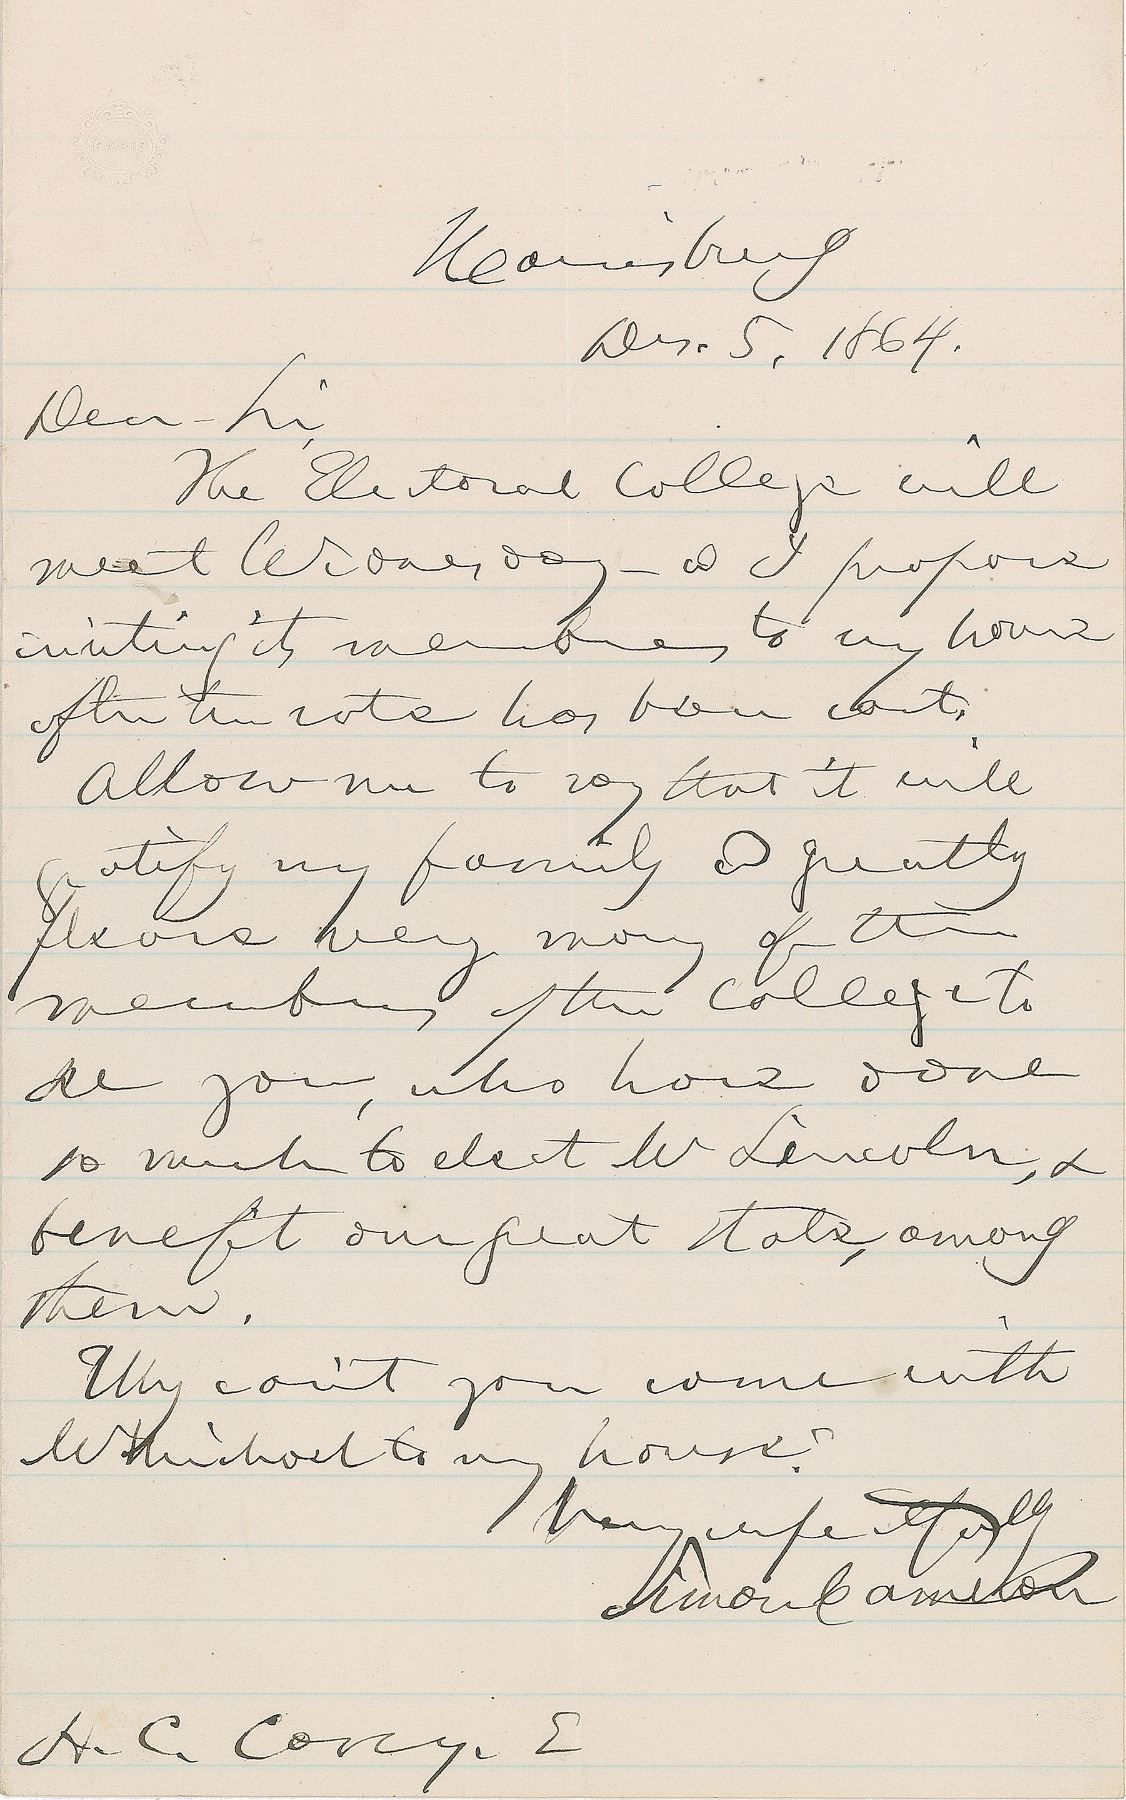 PARIS
Harrisburg
Dec. 5. 1864.
Dear Sir,
The Electoral College will
meet Wednesday - & I propose
inviting its members to my house
after the vote has been cast.
Allow me to say that it will
gratify my family & greatly
please very many of the
members of the College to
see you, who have done
so much to elect Mr Lincoln, &
benefit our great state, among
them.
Why can't you come with
to my house?
Very respectfully
Simon Cameron
H. C. Carey. E